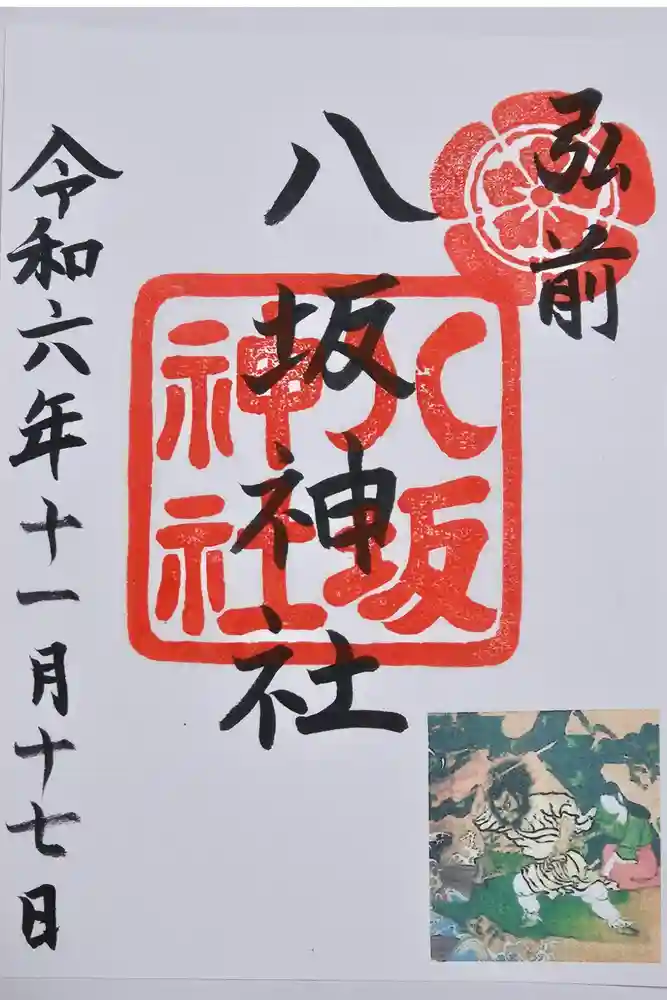 弘前
八坂神社
八坂神社
令和六年十一月十七日